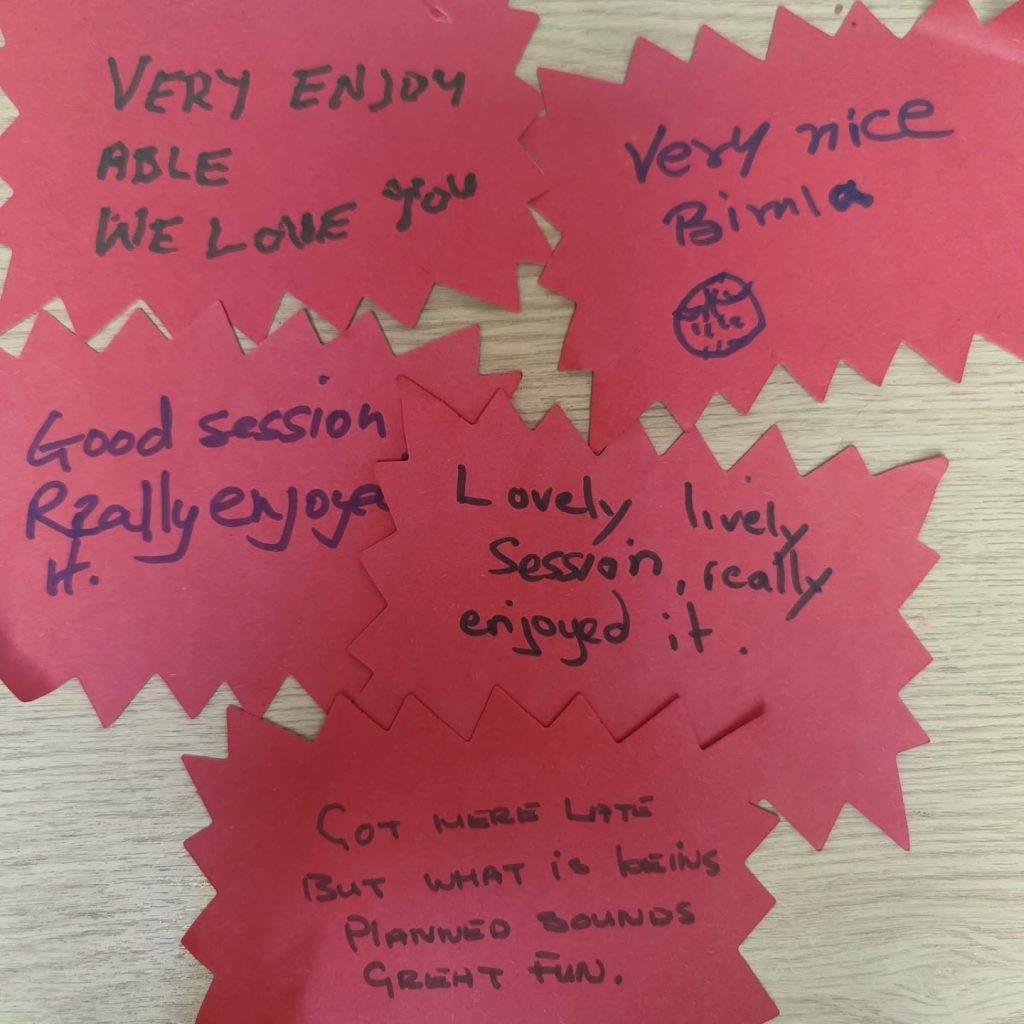 VERY ENJOY
ABLE
WE LOVE YOU
Very nice
Bimla
Good session
Really enjoye
it.
Lovely lively
Session, really
enjoyed it.
GOT HERE LATE
BUT WHAT is being
PlANNED SOUNDS
GREAT FUN.